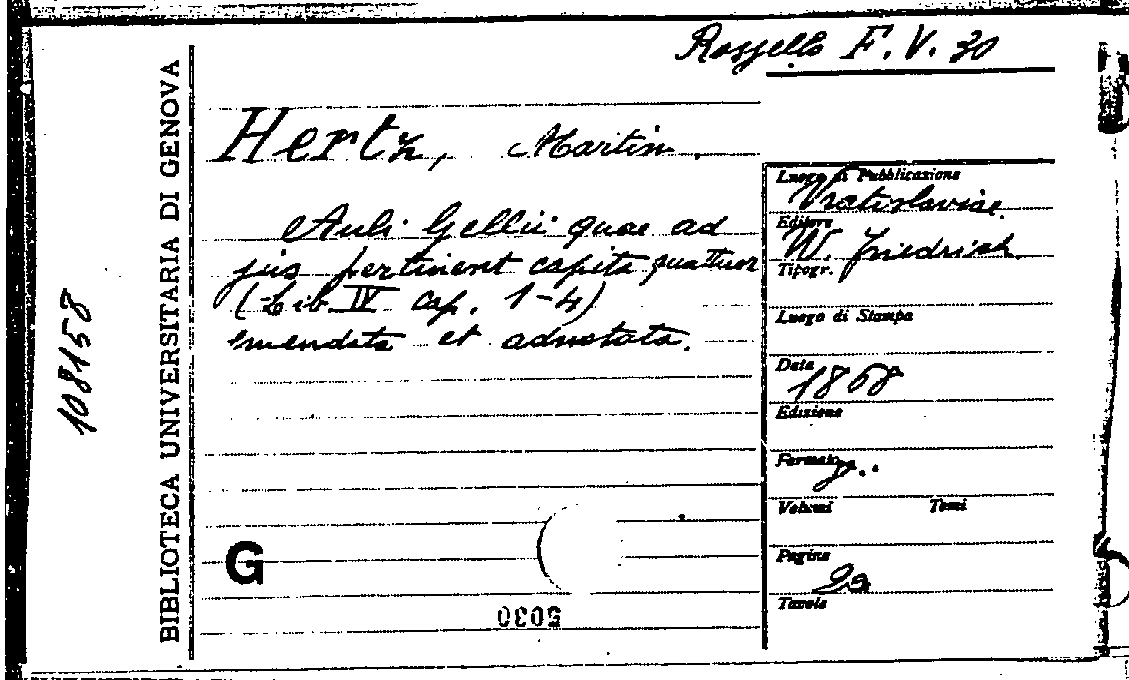 Rossello F. V. 30
Hertz, Martin.
Auli Gellii quae ad
jus pertinent capita quattuor
(Lib. IV cap. 1-4)
emendata et adnotata.
Luogo di Pubblicazione
Vratislaviae
Editore
W. Friedrich
Tipogr.
Luogo di Stampa
Data
1868
Edizione
Formato
Volumi Tomi
Pagine
Tavole
BIBLIOTECA UNIVERSITARIA DI GENOVA
108158
G
5030